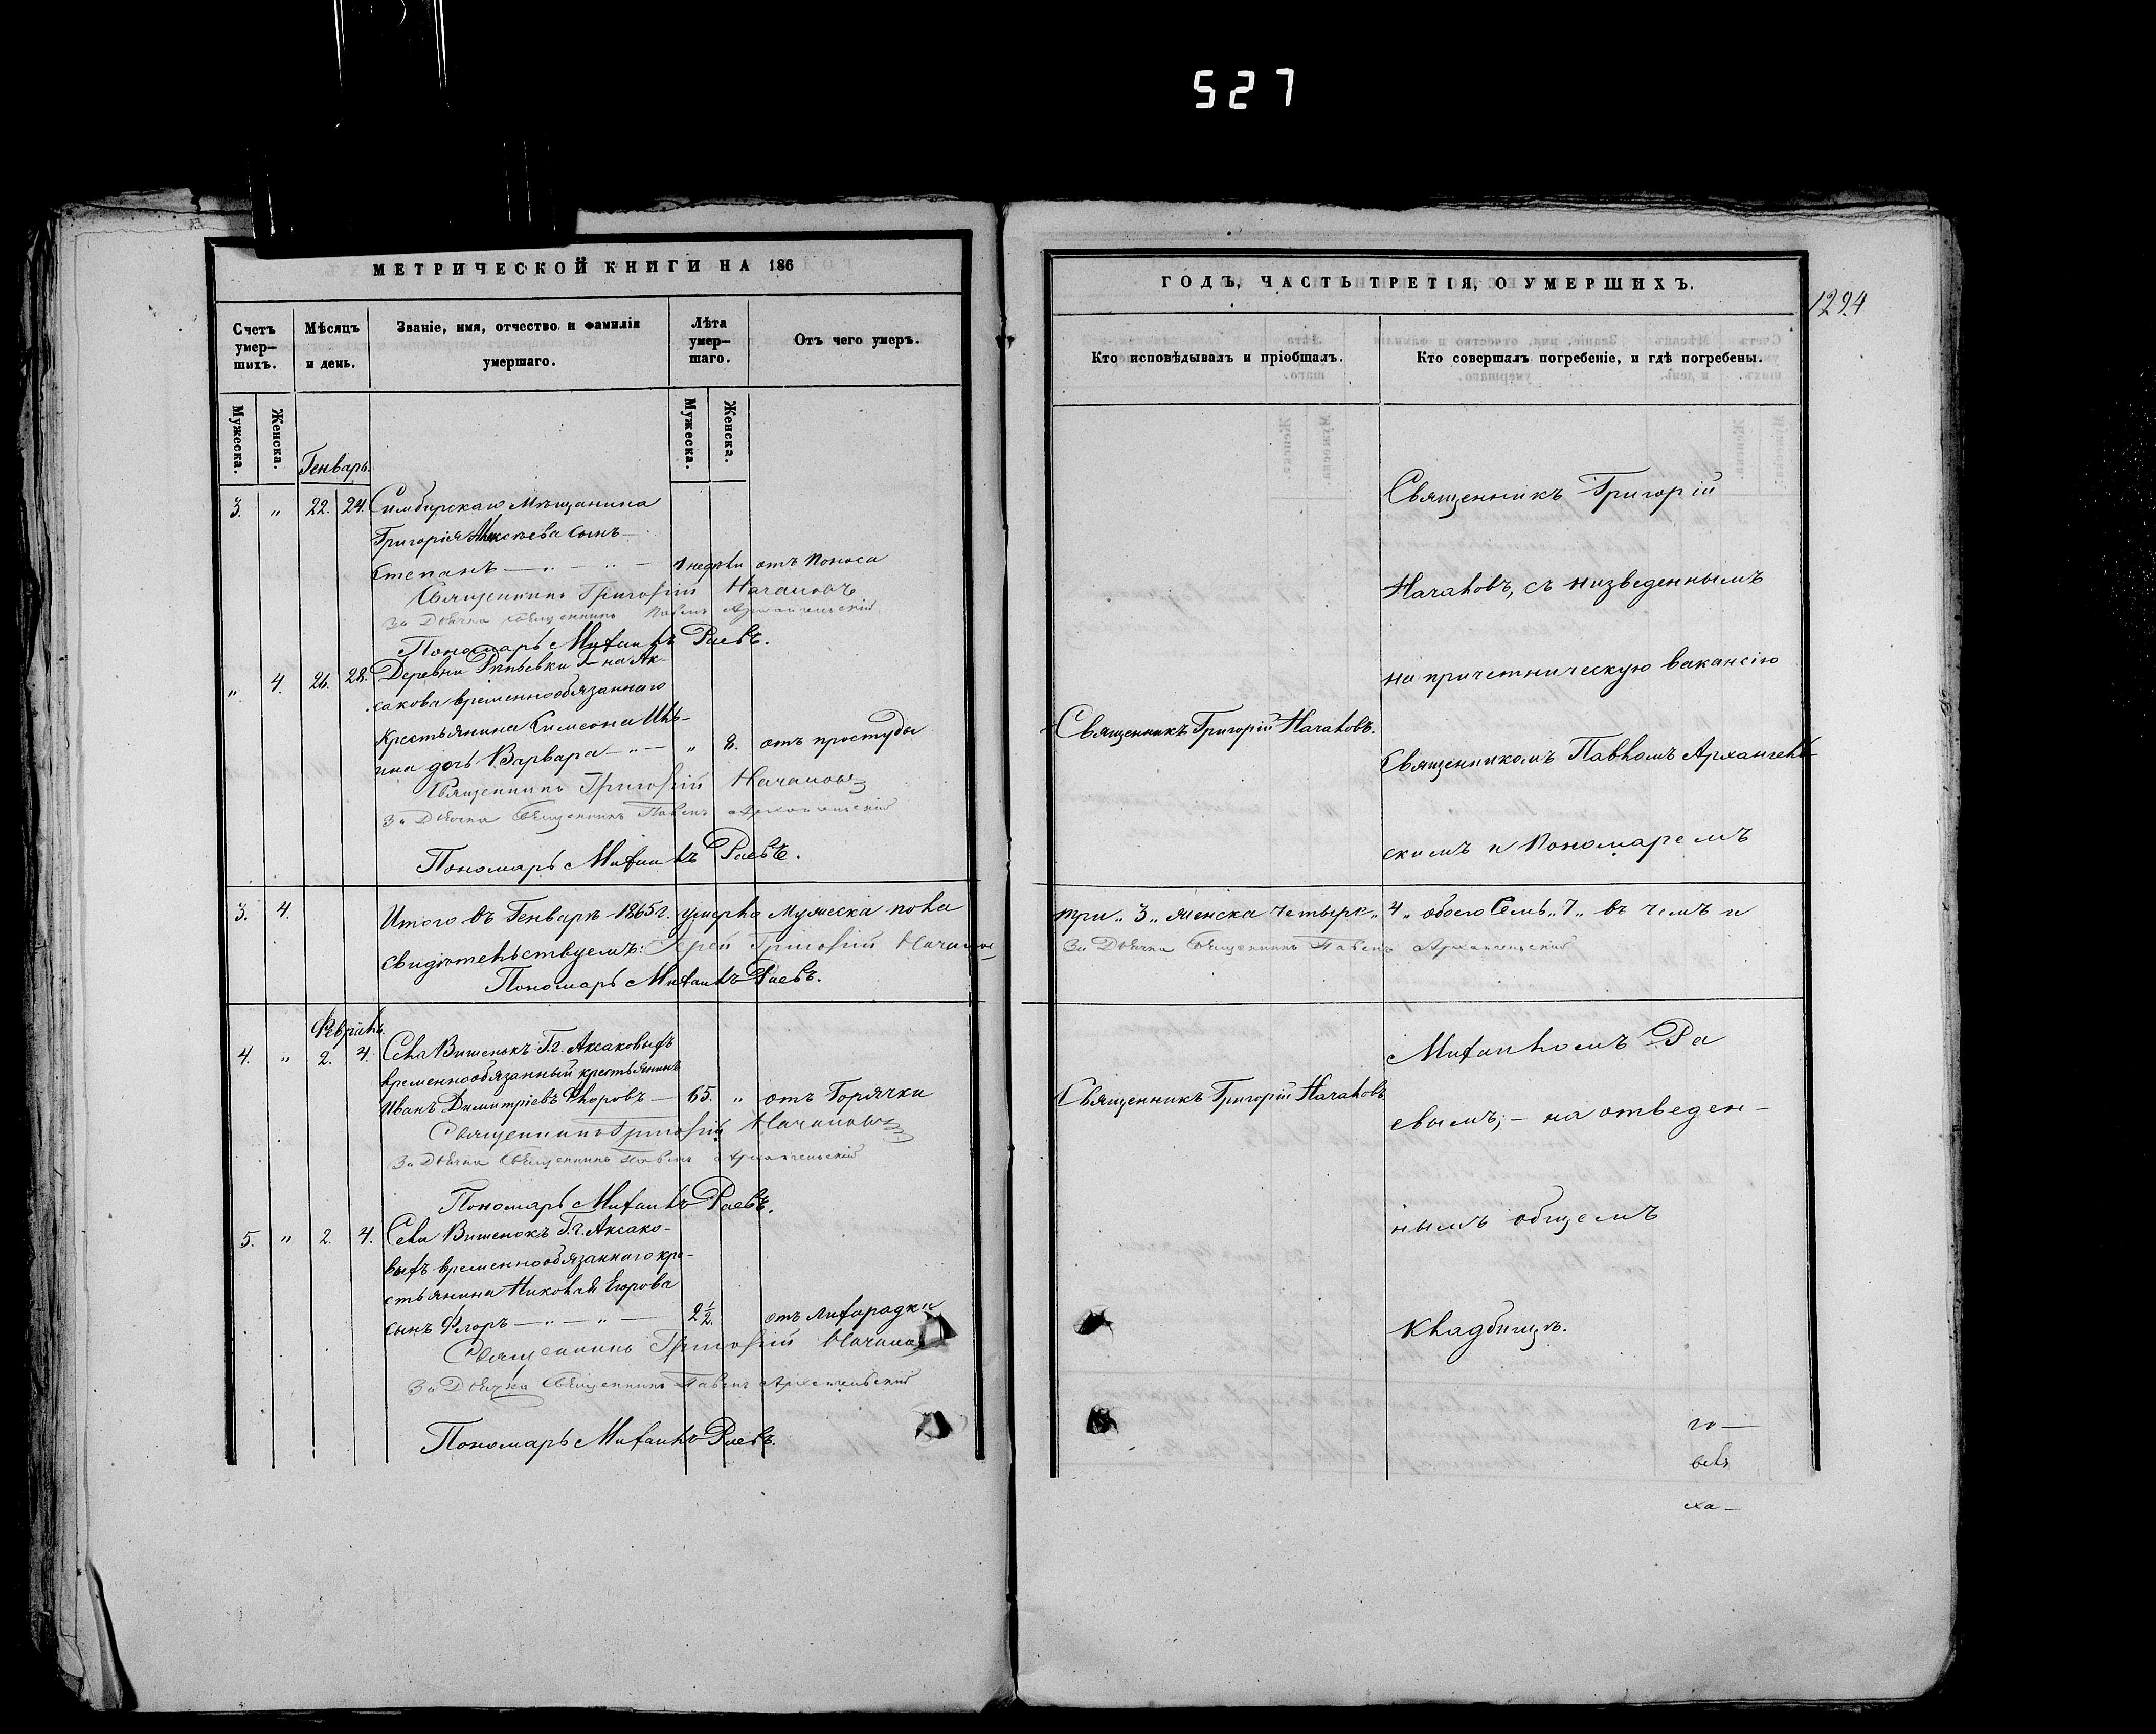 527
МЕТРИЧЕСКОЙ КНИГИ НА 186
Счетъ умер-шихъ.
Мѣсяцъ и день.
Званіе, имя, отчество и фамилія умершаго.
Лѣта умер-шаго.
Отъ чего умеръ.
Мужеска.
Женска.
Мужеска.
Женска.
Генварь.
3. " 22. 24. Симбирскаго Мѣщанина
Григорія Алексѣева сынъ —
Степанъ — " — " — 1 недѣли отъ поноса
Священникъ Григорій Началовъ
За Дьячка Священникъ Павелъ Архангельскій
Пономарь Михаилъ Раевъ.
" 4. 26. 28. Деревни Рѣпьевки Г-на Ак-
сакова временнообязаннаго
крестьянина Симеона Иль-
ина дочь Варвара — " — " 8. отъ простуды
Священникъ Григорій Началовъ
За Дьячка Священникъ Павелъ Архангельскій
Пономарь Михаилъ Раевъ.
3. 4. Итого въ Генварѣ 1865 г. умерло мужеска пола
свидѣтельствуемъ: Іерей Григорій Началов
Пономарь Михаилъ Раевъ.
Февраль.
4. " 2. 4. Села Вишенокъ Г.г. Аксаковыхъ
временнообязанный крестьянинъ
Иванъ Димитріевъ Флоровъ — 65. " отъ Горячки
Священникъ Григорій Началовъ
За Дьячка Священникъ Павелъ Архангельскій
Пономарь Михаилъ Раевъ.
5. " 2. 4. Села Вишенокъ Г.г. Аксако-
выхъ временнообязаннаго кре-
стьянина Николая Егорова
сынъ Флоръ — " — " — 2 1/2. отъ лихорадки
Священникъ Григорій Начало
За Дьячка Священникъ Павелъ Архангельскій
Пономарь Михаилъ Раевъ.
ГОДЪ, ЧАСТЬ ТРЕТІЯ, О УМЕРШИХЪ.
1294
Кто исповѣдывалъ и пріобщалъ.
Кто совершалъ погребеніе, и гдѣ погребены.
Священникъ Григорій
Началовъ, съ низведеннымъ
на причетническую вакансію
Священникъ Григорій Началовъ.
Священникомъ Павломъ Архангель-
скимъ и Пономаремъ
три " 3 " женска четыре " 4 " обоего Семь " 7 " въ чемъ и
За Дьячка Священникъ Павелъ Архангельскій
Михаиломъ Ра
Священникъ Григорій Началовъ
евымъ; — на отведен-
нымъ общемъ
кладбищѣ.
го —
вель
ха —